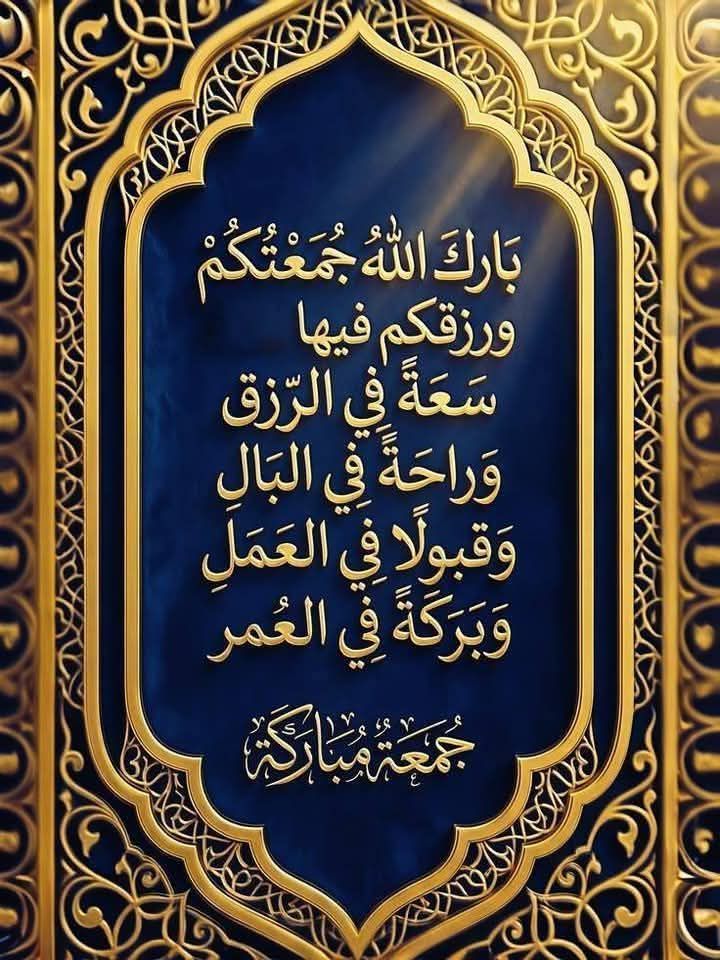 بَارِكَ اللهُ جُمَعْتُكُمْ
ورزقكم فيها
سَعَةً فِي الرّزق
وَراحَةً فِي البَالِ
وَقبولًا فِي العَمَلِ
وَبَرَكَةً فِي العُمر
جُمعَةٌ مُبَارَكَة